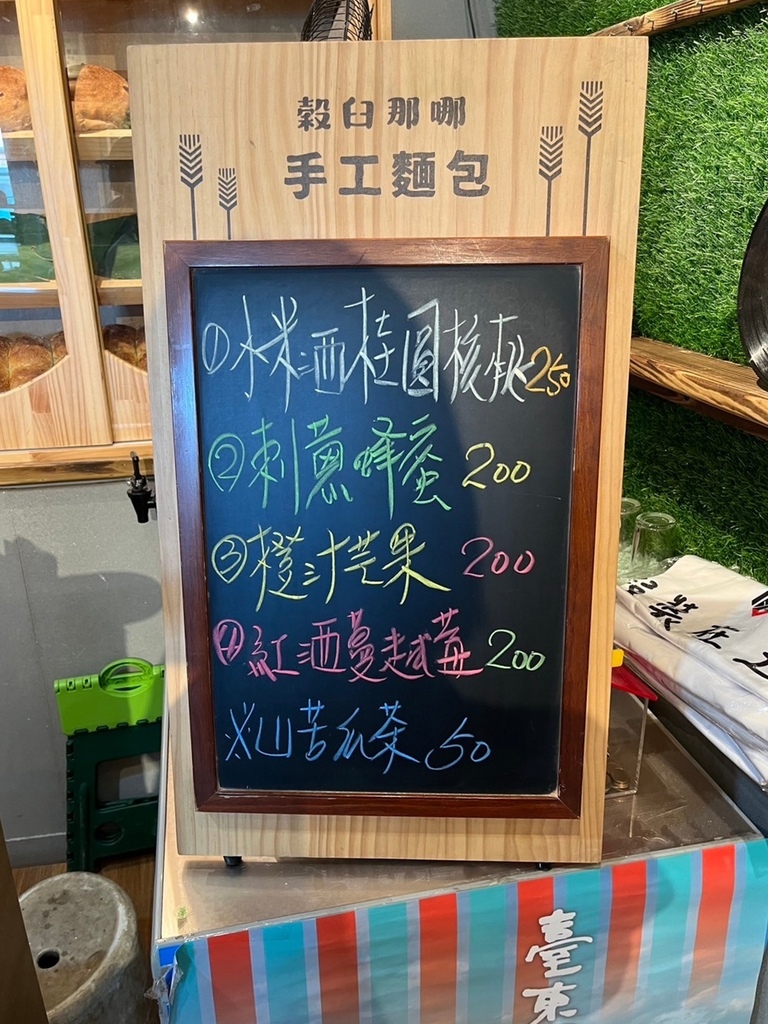 穀臼那哪
手工麵包
①小米酒桂圓核軟250
②刺蔥蜂蜜 200
③橙汁芒果 200
④紅酒蔓越莓200
※山苦瓜茶 50
臺東